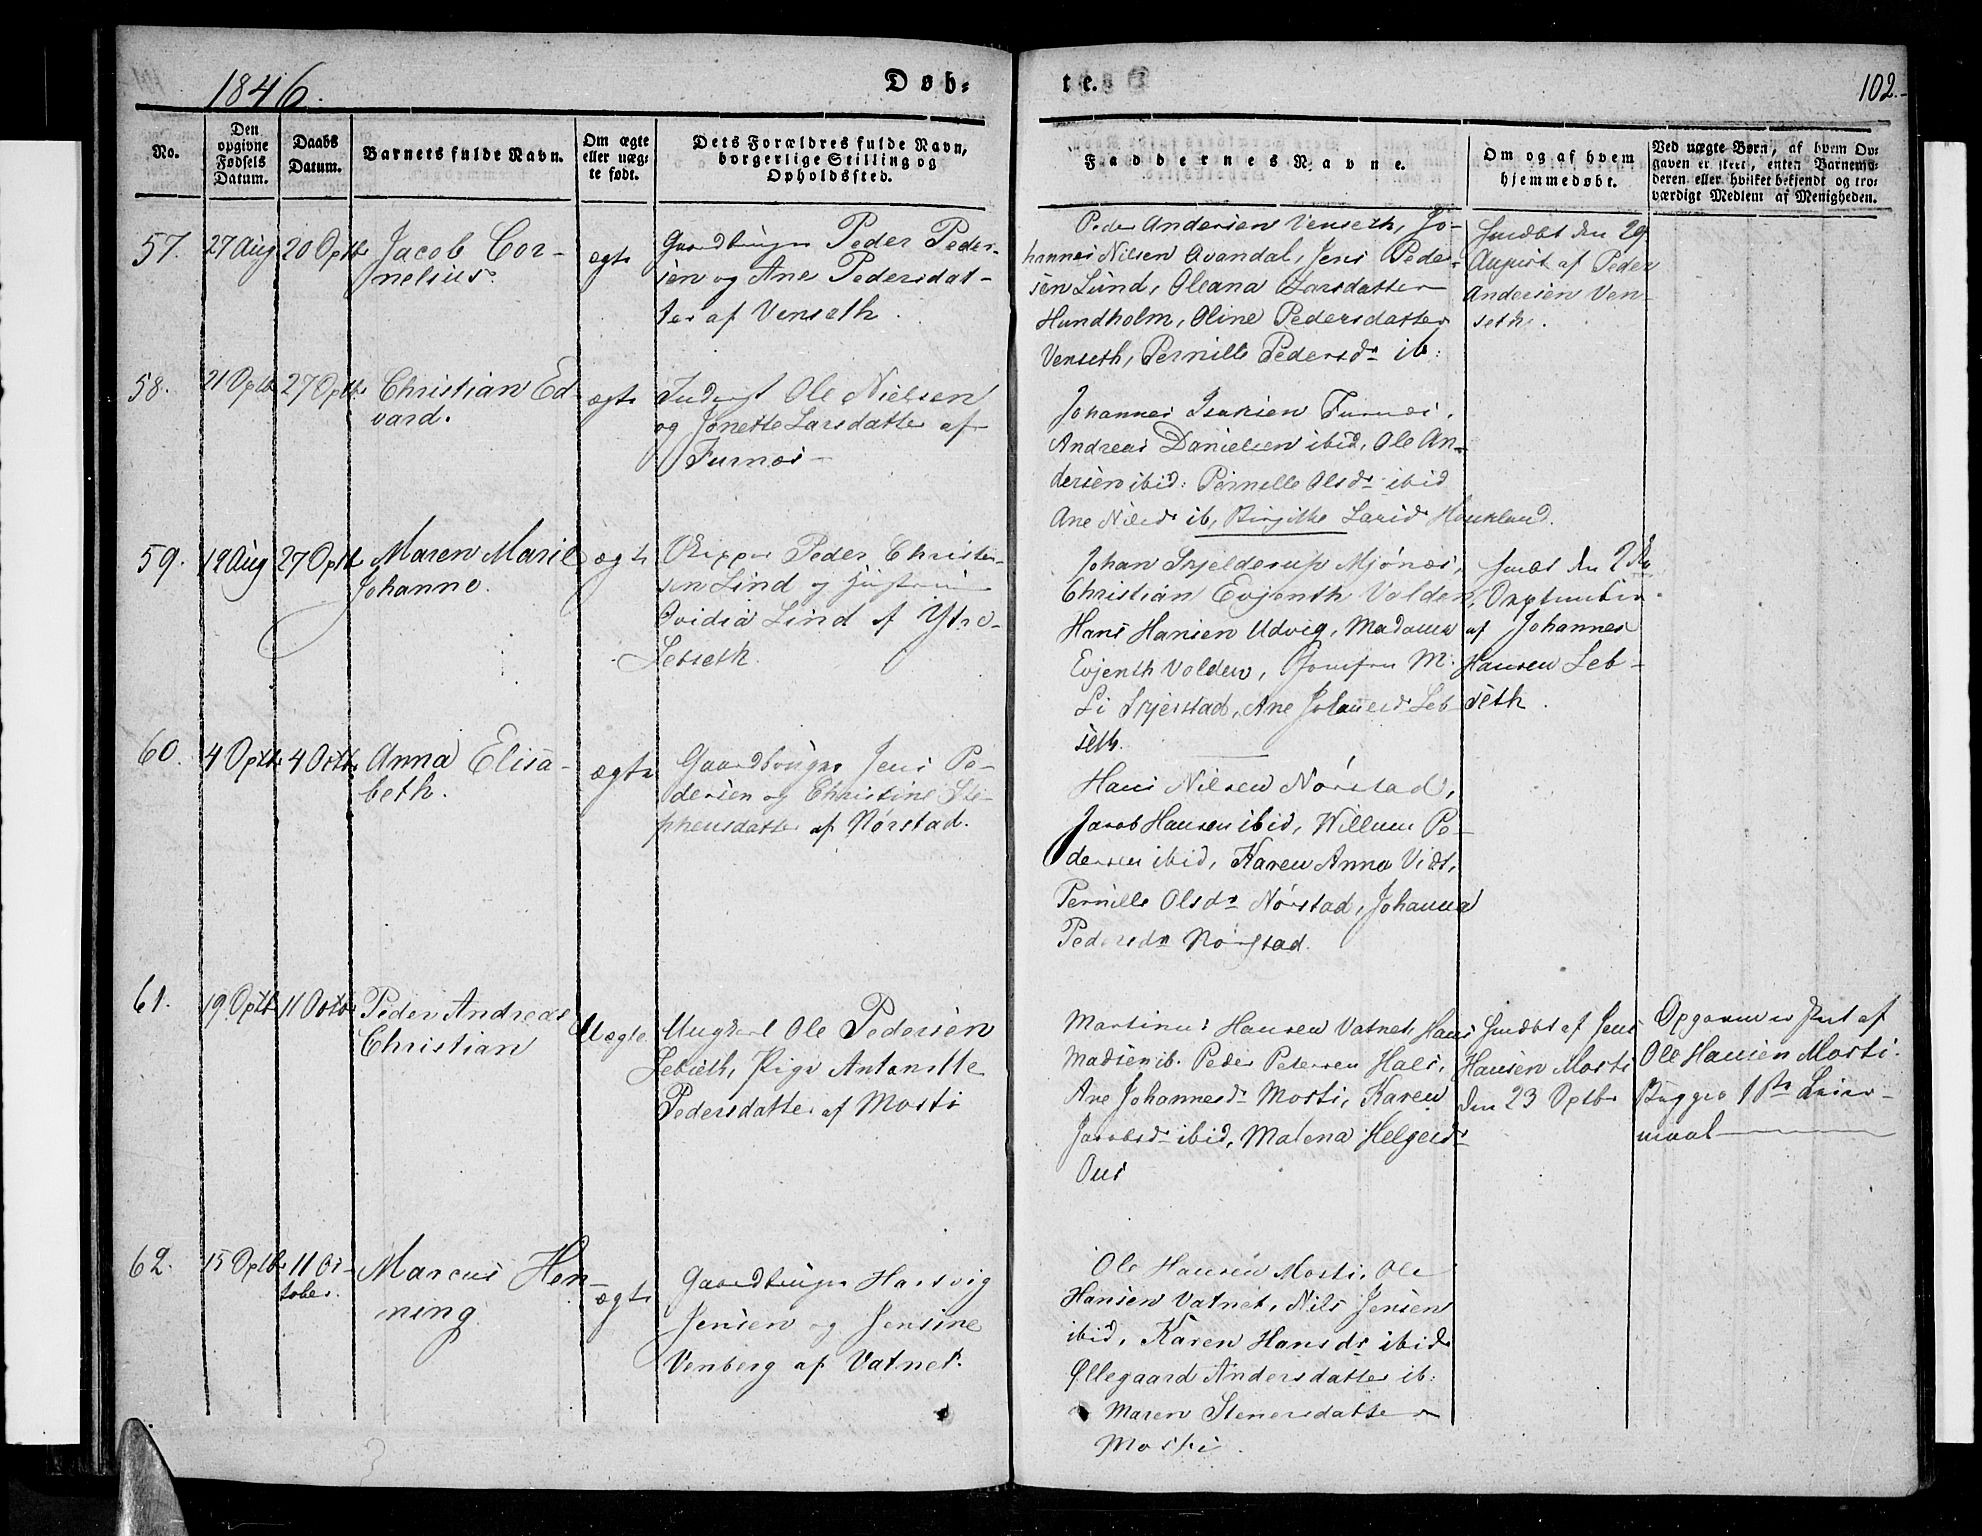 1846.
Døb-
te.
102.
No.
Den opgivne Fødsels Datum.
Daabs Datum.
Barnets fulde Navn.
Om ægte eller uæg- te født.
Dets Forældres fulde Navn, borgerlige Stilling og Opholdssted.
Faddernes Navne.
Om og af hvem hjemmedøbt.
Ved uægte Børn, af hvem Op-
gaven er skeet, enten Barnemo-
deren eller hvilket bekjendt og tro-
værdigt Medlem af Menigheden.
57. 27 Aug 20 Sptb
Jacob Cor-
nelius.
ægte
Gaardbruger Peder Peder-
sen og Ane Pedersdat-
ter af Venseth.
Peder Andersen Venseth, Jo-
hannes Nilsen Avandal, Jens Peder-
sen Lund, Oleana Larsdatter
Hundholm, Oline Pedersdatter
Venseth, Pernille Pedersdr ib:
hmdbt den 29
August af Peder
Andersen Ven-
seth.
58. 21 Sptb 27 Sptbr
Christian Ed-
vard.
ægte
Inderst Ole Nielsen
og Jonette Larsdatter af
Furnæs
Johannes Isaksen Furnæs,
Andreas Danielsen ibid, Ole An-
dersen ibid: Pernille Olsdr ibid
Ane Nilsd ib, Birgithe Larsd
59. 12 Aug 27 Sptb
Maren Marie
Johanne.
ægte
Skipper Peder Christen-
sen Lind og Hustrue
Ovidia Lind af Ytre-
Lebseth.
Johan Skjelderup Mjønæs,
Christian Evjenth Valden,
Hans Hansen Udvig, Madame
Evjenth Valden, Jomfru M.
Li Skjerstad, Ane Johansd Leb-
seth.
hmdbt den 2den
September
af Johannes
Hansen Leb-
seth.
60. 4 Sptbr 4 Octbr
Anna Elisa-
beth.
ægte
Gaardbruger Jens Pe-
dersen og Christine Ste-
phensdatter af Nørstad.
Hans Nilsen Nørstad,
Jacob Hansen ibid, Willum Pe-
dersen ibid, Karen Anna
Pernille Olsdr Nørstad, Johanna
Pedersdr Nørstad.
61. 19 Sptb 11 Octbr
Peder Andreas
Christian
Uægte
Ungkarl Ole Pedersen
Lebseth, Pige Antonette
Pedersdatter af Mosti
Martinus Hansen Vatnet, Hans
Madsen ib. Peder Petersen Hals,
Ane Johannesdr Mosti, Karen
Jacobsdr ibid, Malena Helgesdr
Øus
hmdbt af Jens
Hansen Mosti
den 23 Sptbr
Opgaven er skeet af
Ole Hansen Mosti.
Begges 1ste Leier-
maal
62. 15 Sptbr 11 Oc-
tober.
Marcus Hen-
ning
ægte
Gaardbruger Hartvig
Jensen og Jensine
Venberg af Vatnet.
Ole Hansen Mosti, Ole
Hansen Vatnet, Nils Jensen
ibid, Karen Hansdr ibid
Øllegaard Andersdatter ib:
Maren Stenersdatter
Mosti.